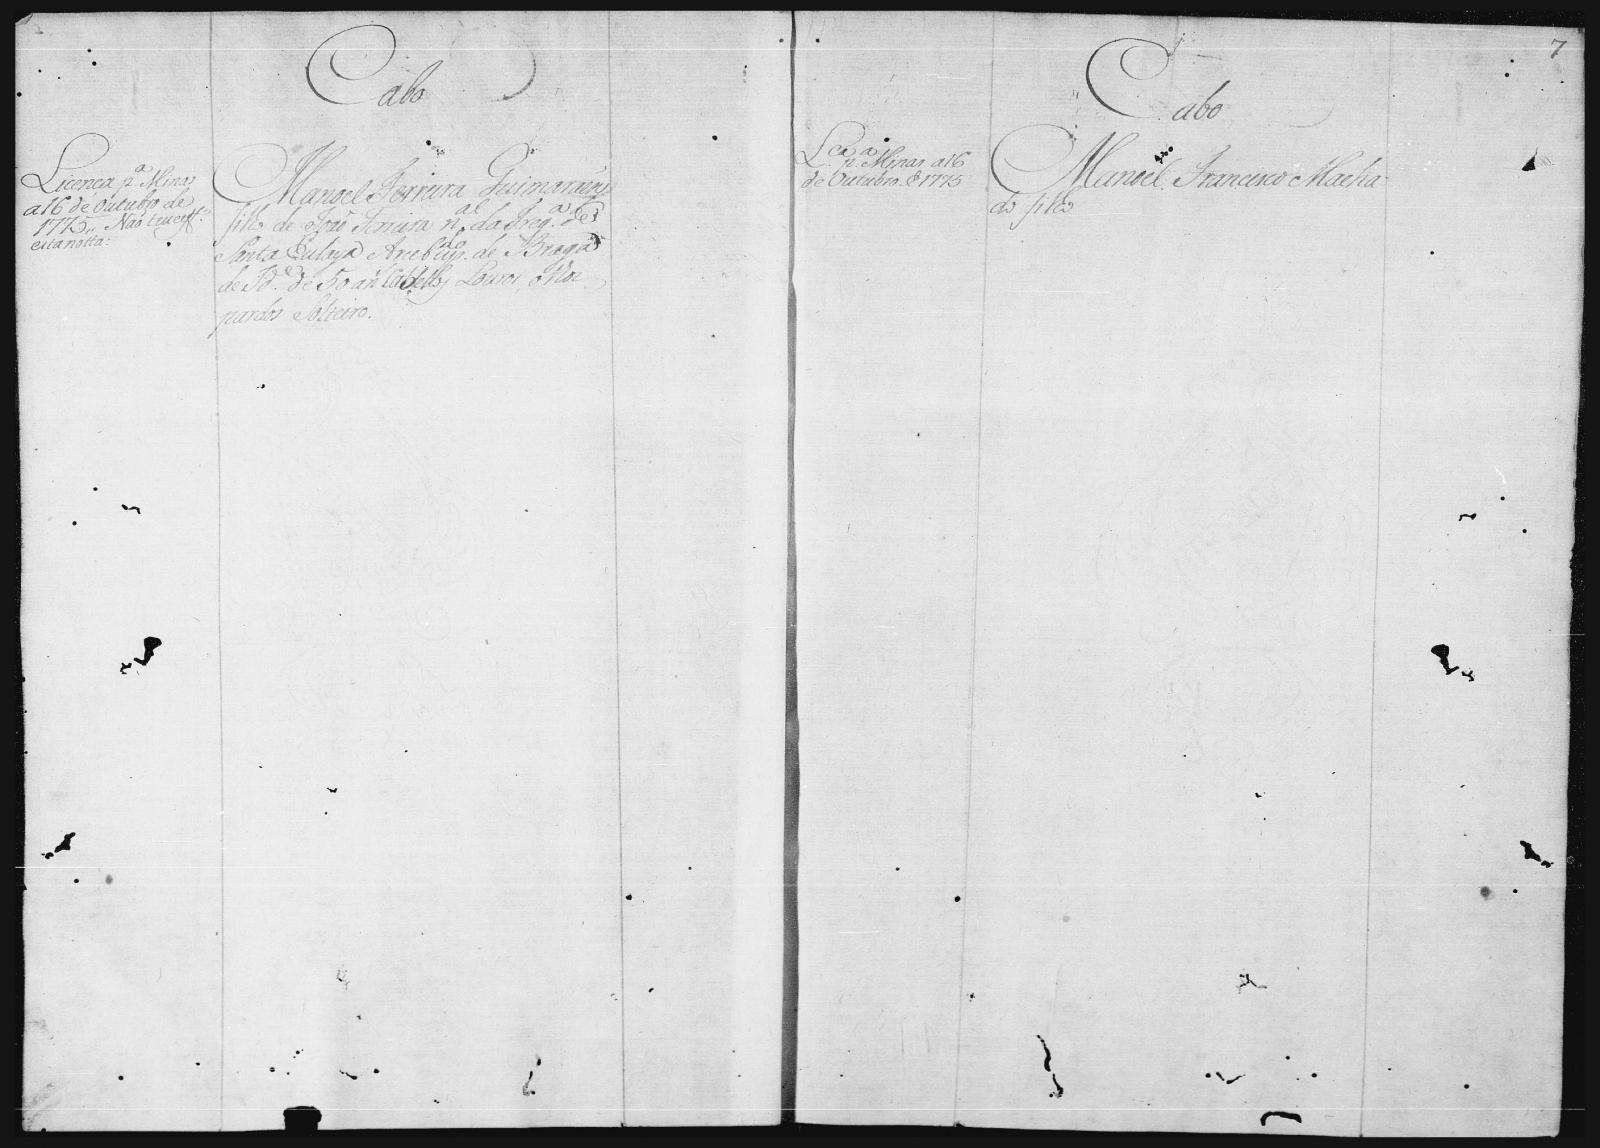 Cabo
Licença p.ª Minas
a 16 de Outubro de
1775,, Não teve eff.º
esta notta:
Manoel Ferreira Guimaraens
filho de João Ferreira n.al da Freg.ª de
Santa Eulaya Arcebisp.do de Braga
de Id.e de 50 an Cabellos Louros, Olhos
pardos Solteiro.
7
Cabo
Lca p.ª Minas a 16
de Outubro de 1775
Manoel Francisco Macha-
do filho